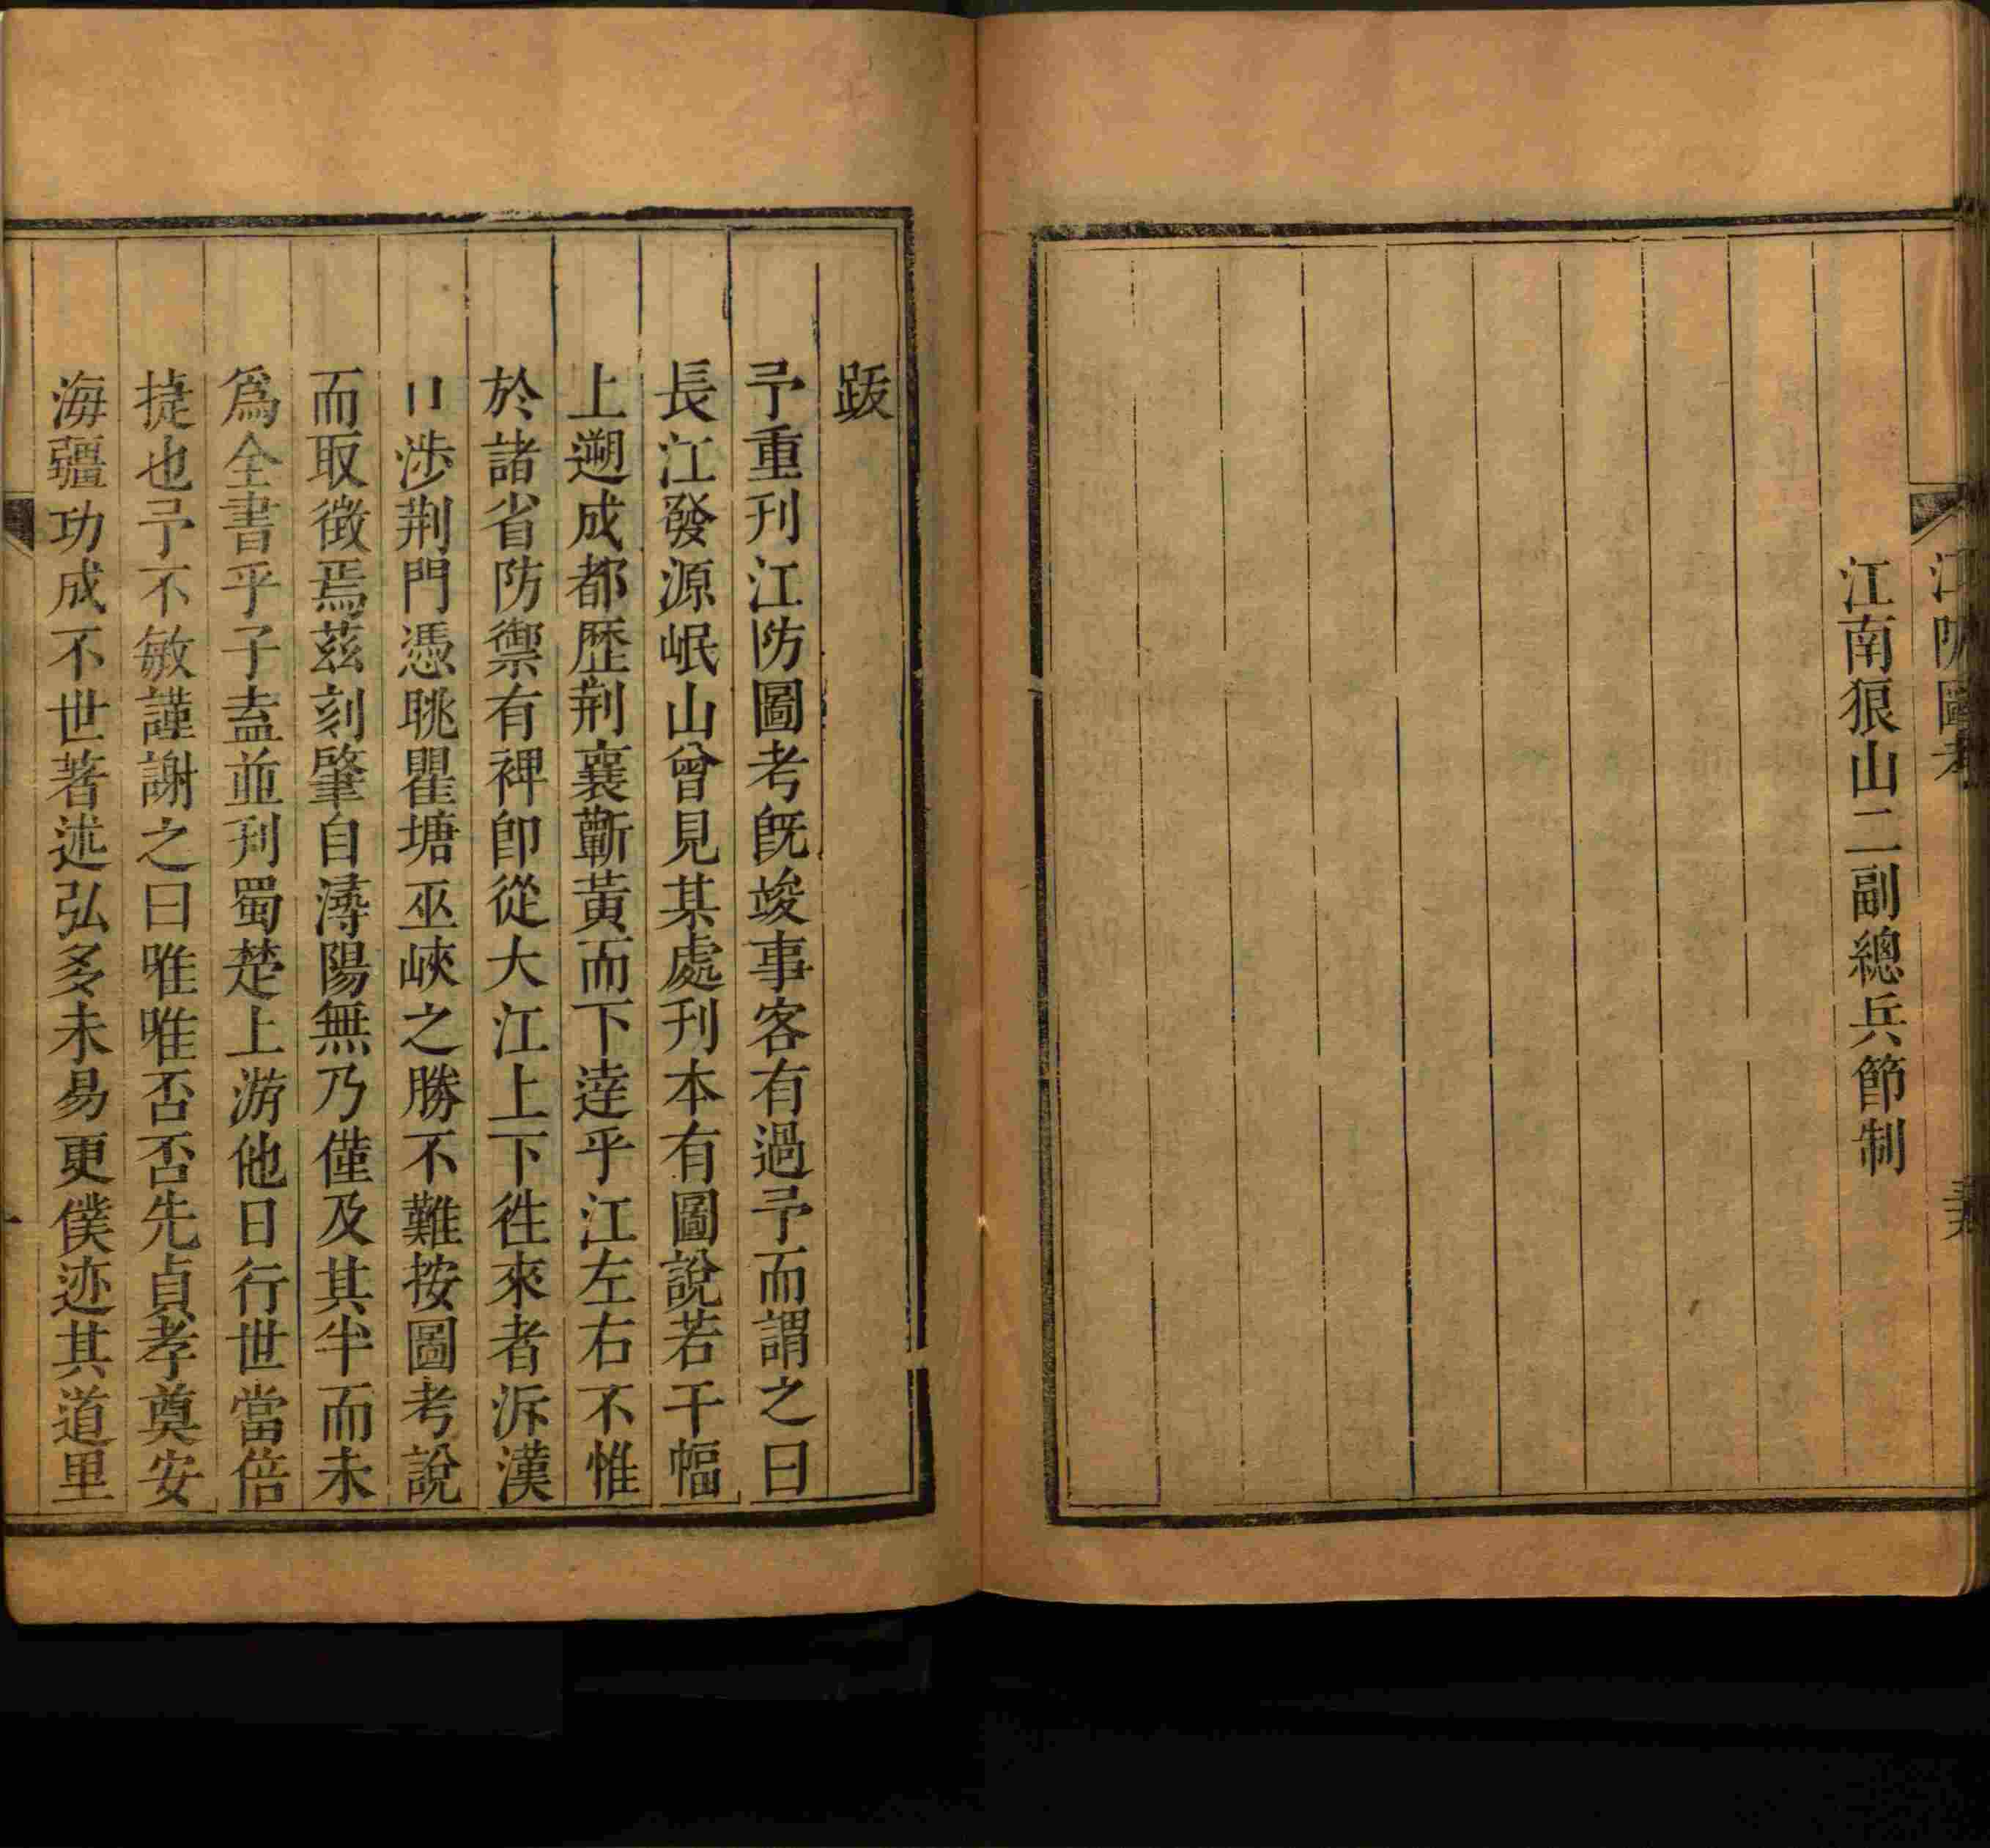 江防圖考
江南狼山二副總兵節制
跋
予重刋江防圖考旣竣事客有過予而謂之曰
長江發源岷山曾見某處刋本有圖說若干幅
上遡成都歷荆襄蘄黃而下達乎江左右不惟
於諸省防禦有裨卽從大江上下徃來者泝漢
口涉荆門憑眺瞿塘巫峽之勝不難按圖考說
而取徵焉茲刻肇自潯陽無乃僅及其半而未
爲全書乎子盍並刋蜀楚上游他日行世當倍
捷也予不敏謹謝之曰唯唯否否先貞孝奠安
海疆功成不世著述弘多未易更僕迹其道里